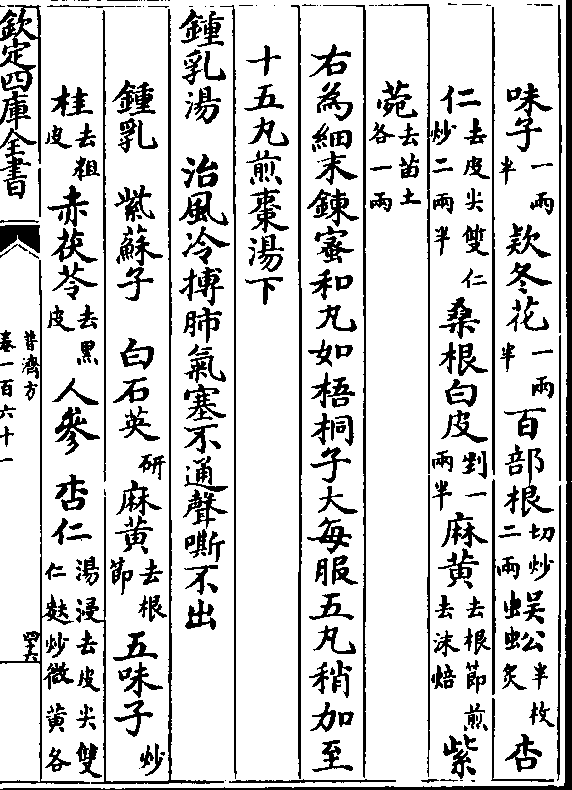 味子一兩半欵冬花一兩半百部根切炒二兩蜈蚣半枚炙杏
仁去皮尖雙仁炒二兩半桑根白皮剉一兩半麻黄去根節煎去沫焙紫
菀去苗土各一兩
右為細末鍊蜜和丸如梧桐子大每服五丸稍加至
十五丸煎棗湯下
鍾乳湯 治風冷搏肺氣塞不通聲嘶不出
鍾乳 紫蘇子 白石英研麻黄去根節五味子炒
桂去粗皮赤茯苓去黑皮人參 杏仁湯浸去皮尖雙仁麩炒微黄各
欽定四庫全書
普濟方
卷一百六十一